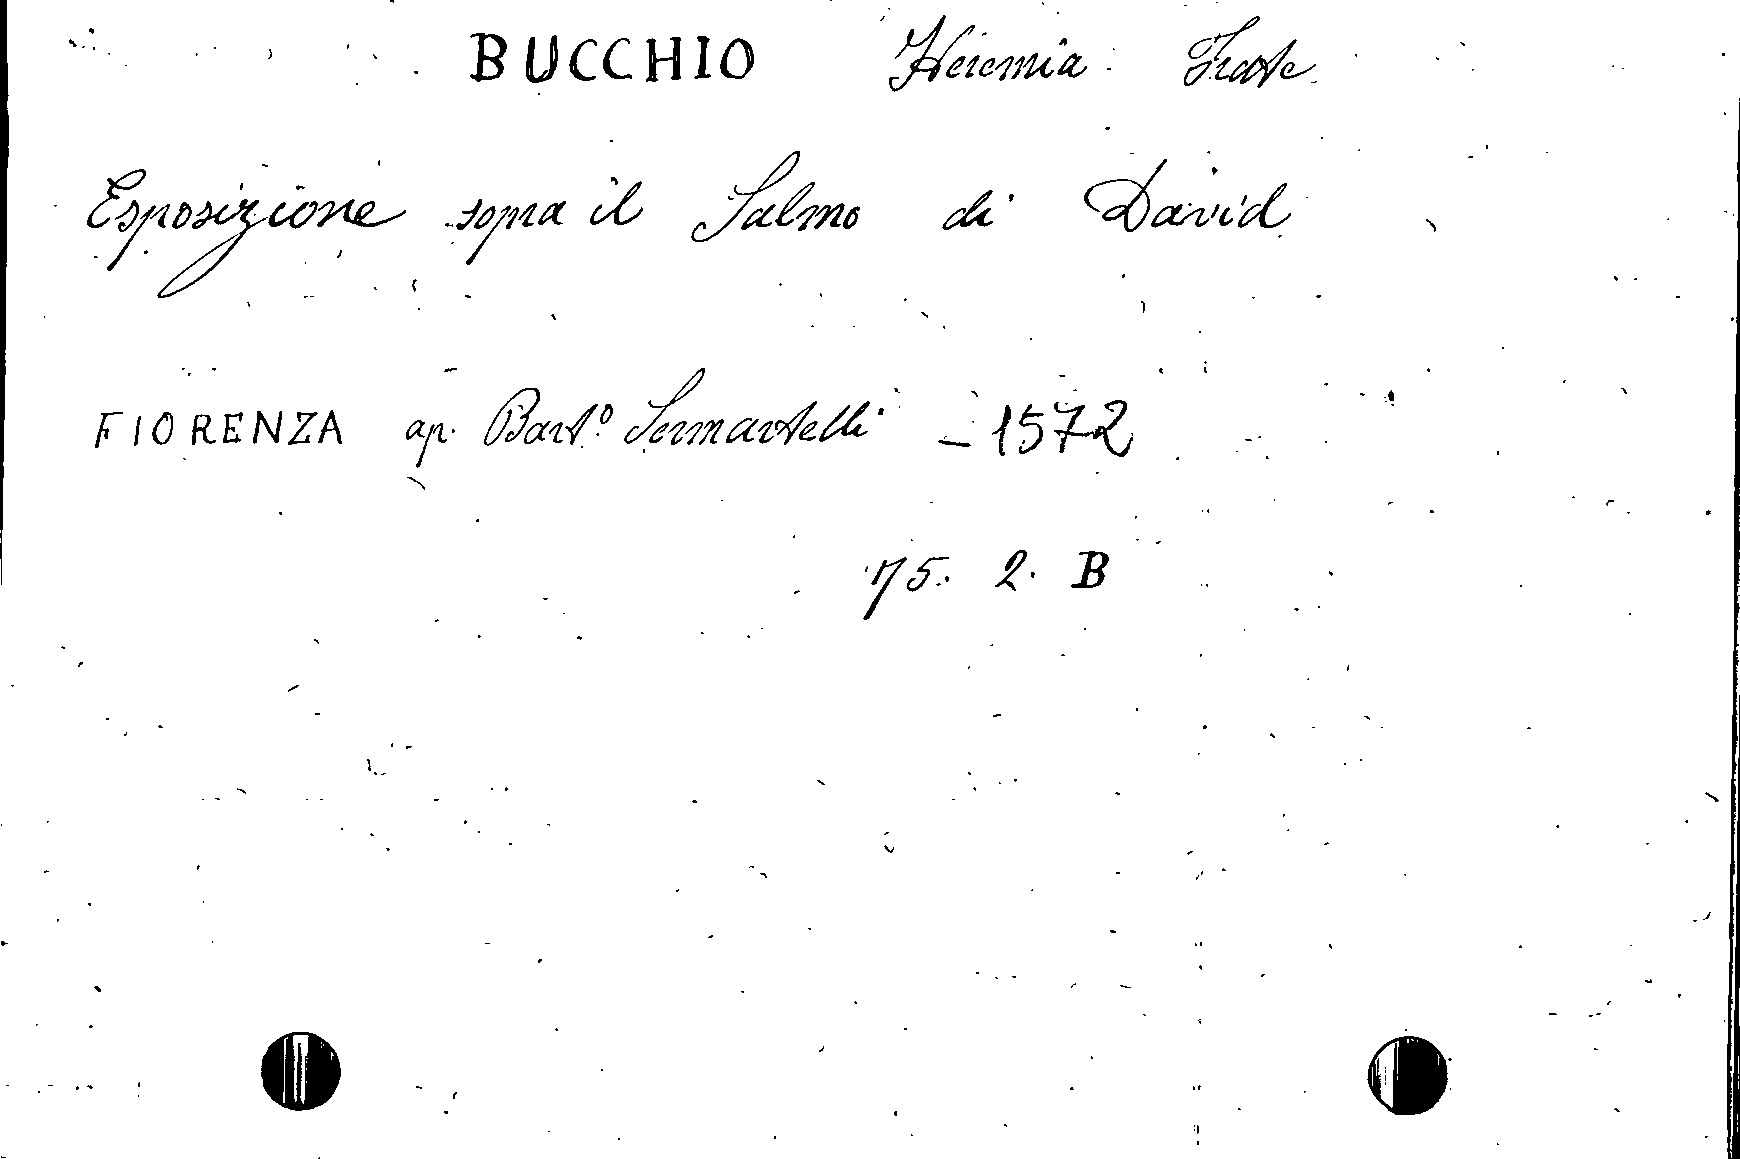 BUCCHIO Heremia Frate
Esposizione sopra il Salmo di David
FIORENZA ap. Bart.º Sermartelli - 1572
75. 2. B